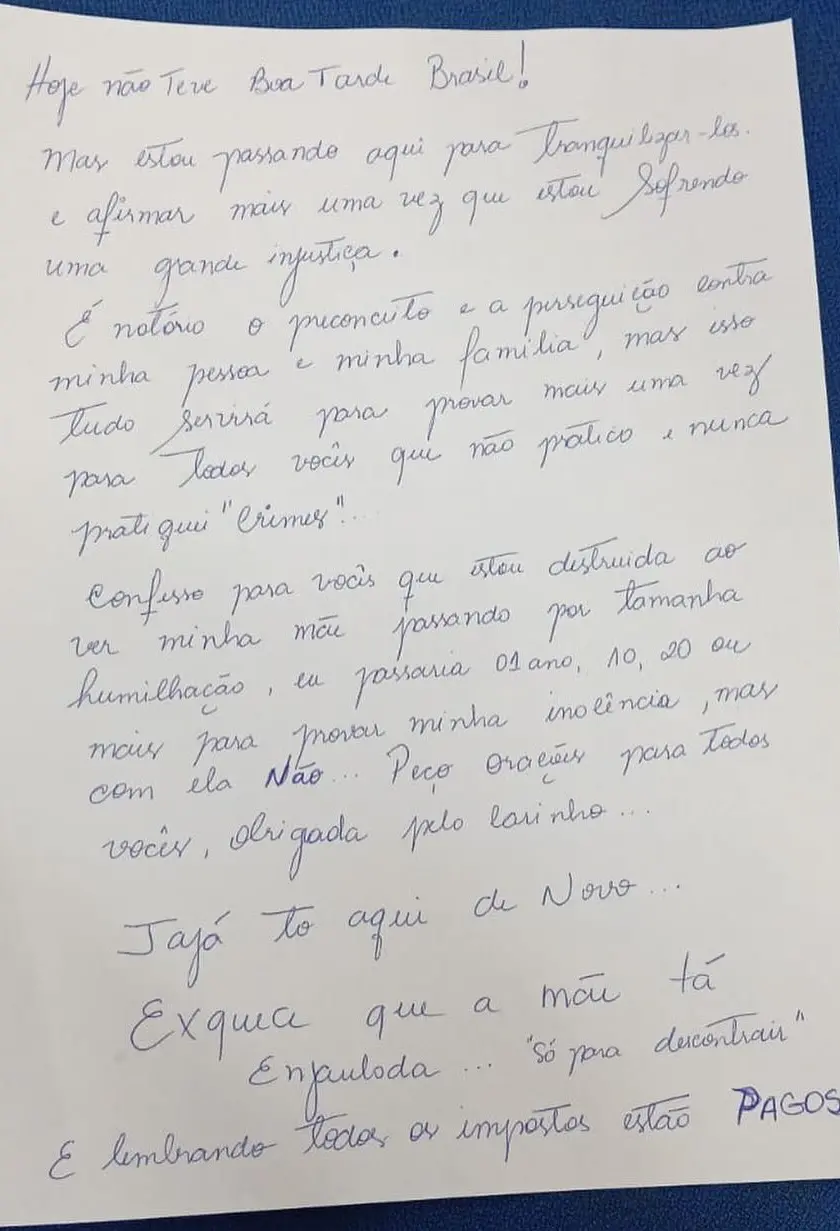 Hoje não Teve Boa Tarde Brasil!
Mas estou passando aqui para Tranquilizar-los.
e afirmar mais uma vez que estou Sofrendo
uma grande injustiça.
É notório o preconceito e a perseguição contra
minha pessoa e minha família, mas isso
Tudo Servirá para provar mais uma vez
para Todos vocês que não prático e nunca
pratiquei "Crimes"...
Confesso para vocês que estou destruida ao
ver minha mãe passando por Tamanha
humilhação, eu passaria 01 ano, 10, 20 ou
mais para provar minha inocência, mas
com ela Não... Peço orações para Todos
vocês, obrigada pelo carinho...
Jajá to aqui de Novo...
Exquea que a mãe tá
Enjauloda... "Só para descontrair"
E lembrando todos os impostos estão PAGOS